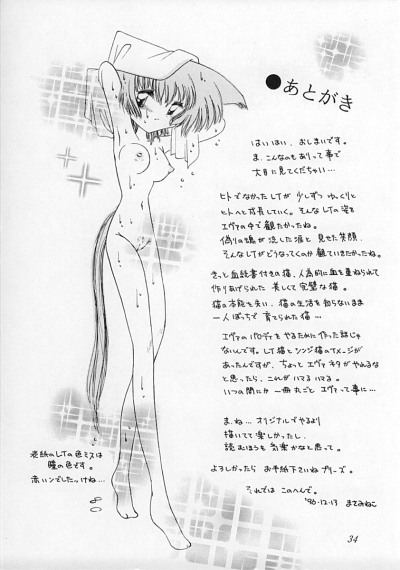 ●あとがき
はいはい、おしまいです。
ま、こんなのもありって事で
大目に見てくだちゃい…
ヒトでなかったLTが 少しずつ ゆっくりと
ヒトへと成長していく。そんなLTの姿を
エヴァの中で観たかったね。
偽りの魂が流した涙と 見せた笑顔。
そんなLTがどうなってくのか 観ていきたかったね。
きっと血統書付きの猫。人為的に血を重ねられて
作りあげられた 美しくて完璧な猫。
猫の本能を失い、猫の生活を知らないまま
一人ぼっちで 育てられた猫 …
エヴァのパロディをやるために作った話じゃ
ないんです。LT猫とシンジ猫のイメージが
あったんですが、ちょっと エヴァ ネタが やれるな
と思ったら、これが ハマる ハマる。
いつの間にか 一冊丸ごと エヴァって事に…
ま、ね… オリジナルでやるより
描いてて楽しかったし、
読むほうも 気楽かなと思って。
よろしかったら お手紙下さいね プリーズ。
それでは このへんで。
'96.12.13 まさみねこ
表紙のLTの色ミスは
瞳の色です。
赤いンでしたっけね…
34